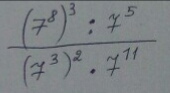 (7⁸)³ : 7⁵
(7³)² · 7¹¹